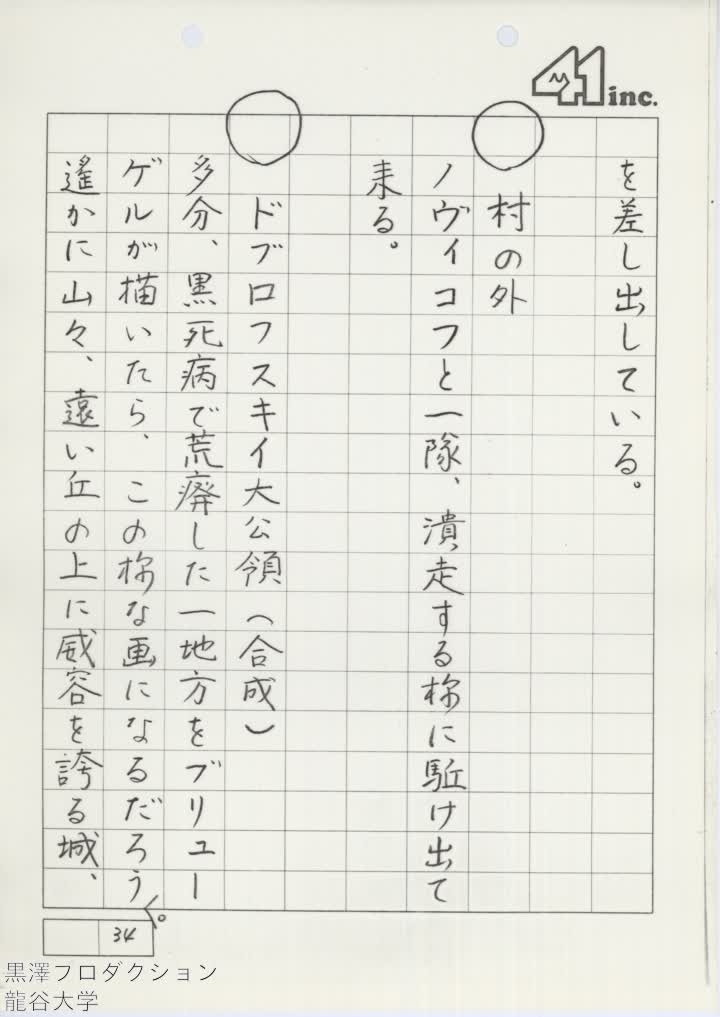 41 inc.
を差し出している。
村の外
ノヴィコフと一隊、潰走する様に駈け出て
来る。
ドブロフスキイ大公領（合成）
多分、黒死病で荒廃した一地方をブリュー
ゲルが描いたら、この様な画になるだろう。
遙かに山々、遠い丘の上に威容を誇る城、
34
黒澤プロダクション
龍谷大学